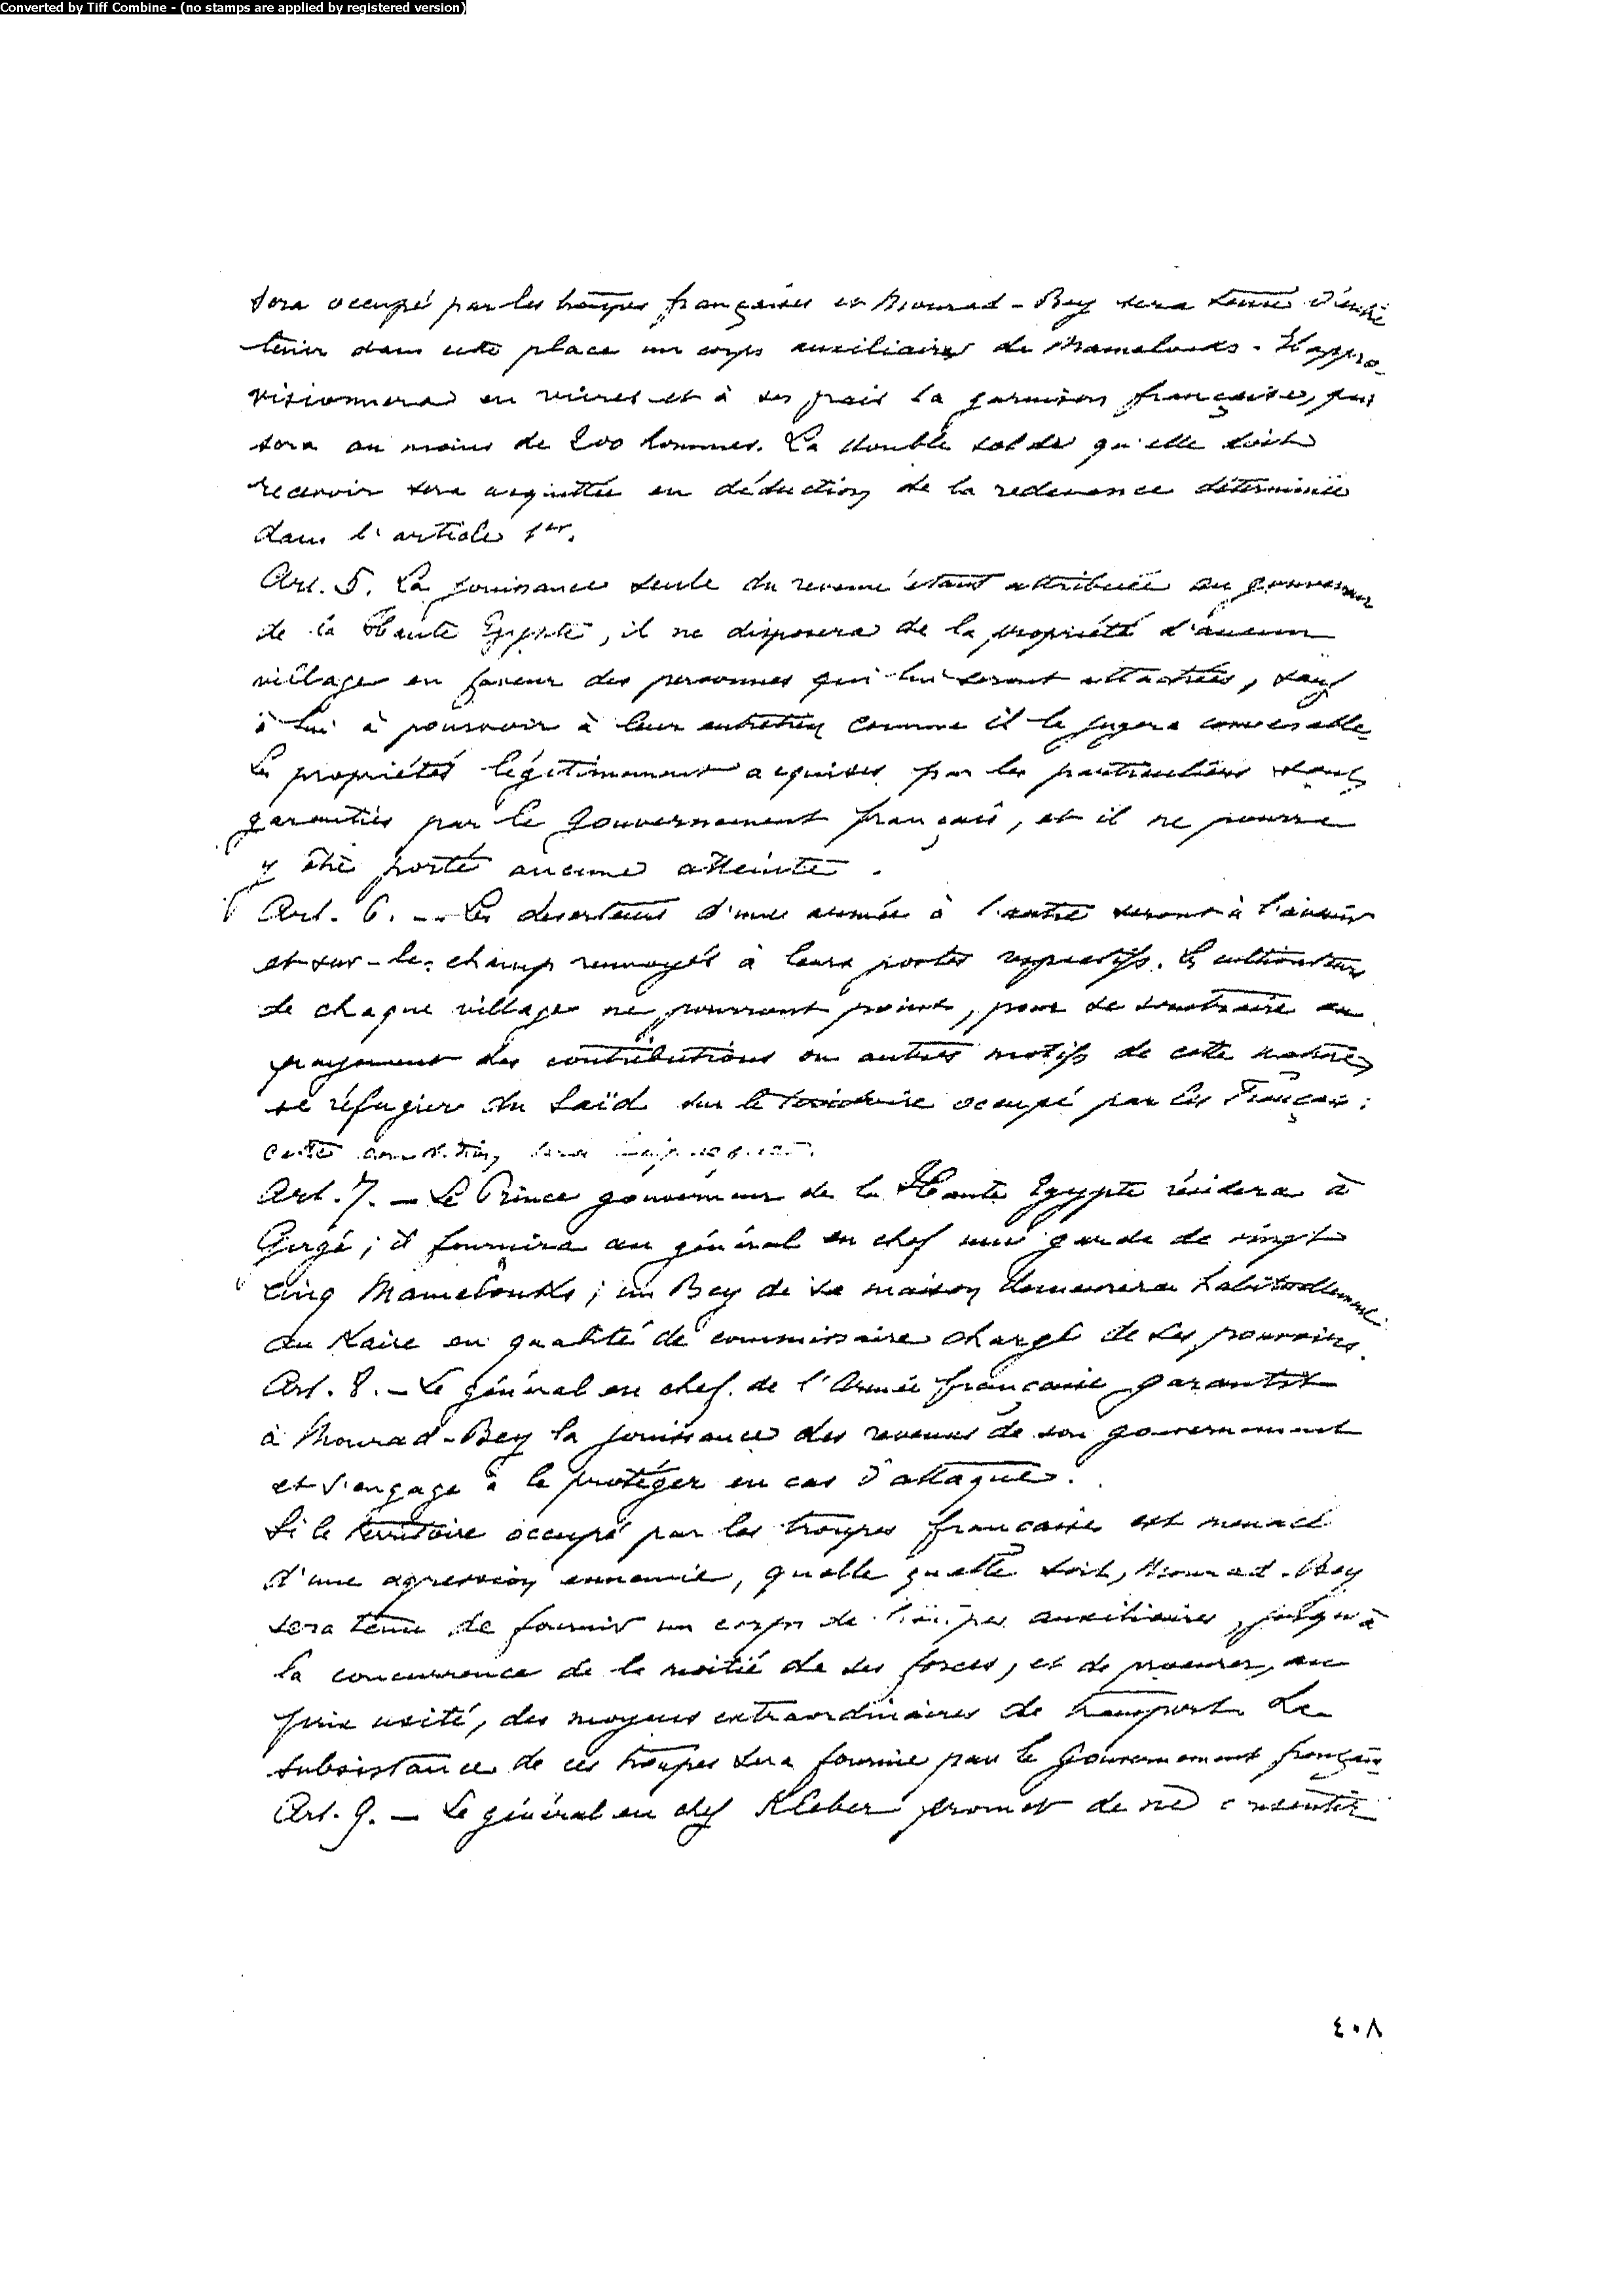 Converted by Tiff Combine - (no stamps are applied by registered version)
sera occupé par les troupes françaises et Mourad-Bey sera tenu d'entre
tenir dans cette place un corps auxiliaire de Mamelouks. Il appro-
visionnera en vivres et à ses frais la garnison française, qui
sera au moins de 200 hommes. La double solde qu'elle doit
recevoir sera acquittée en déduction de la redevance déterminée
dans l'article 1er.
Art. 5. La jouissance seule du revenu étant attribuée au gouverneur
de la Haute Egypte, il ne disposera de la propriété d'aucun
village en faveur des personnes qui lui seront attachées, sauf
à lui à pourvoir à leur entretien comme il le jugera convenable
Les propriétés légitimement acquises par les particuliers sont
garanties par le Gouvernement français, et il ne pourra
y être porté aucune atteinte.
Art. 6. -- Les deserteurs d'une armée à l'autre seront à l'avenir
et sur-le-champ renvoyés à leurs postes respectifs. Les cultivateurs
de chaque village ne pourront point, pour se soustraire au
payement des contributions ou autres motifs de cette nature
se réfugier du Saïd sur le territoire occupé par les Français:
cette condition sera
Art. 7. - Le Prince gouverneur de la Haute Egypte résidera à
Girgé; il fournira au général en chef une garde de vingt
cinq Mamelouks; un Bey de sa maison demeurera habituellement
au Kaire en qualité de commissaire chargé de ses pouvoirs.
Art. 8. - Le général en chef de l'Armée française garantit
à Mourad-Bey la jouissance des revenus de son gouvernement
et s'engage à le protéger en cas d'attaque.
Si le territoire occupé par les troupes françaises est menacé
d'une agression ennemie, quelle quelle soit, Mourad-Bey
sera tenu de fournir un corps de troupes auxiliaires, jusqu'à
la concurrence de la moitié de ses forces, et de procurer, au
prix usité, des moyens extraordinaires de transport. La
subsistance de ces troupes sera fournie par le Gouvernement français
Art. 9. - Le général en chef Kléber promet de ne consentir
٤٠٨